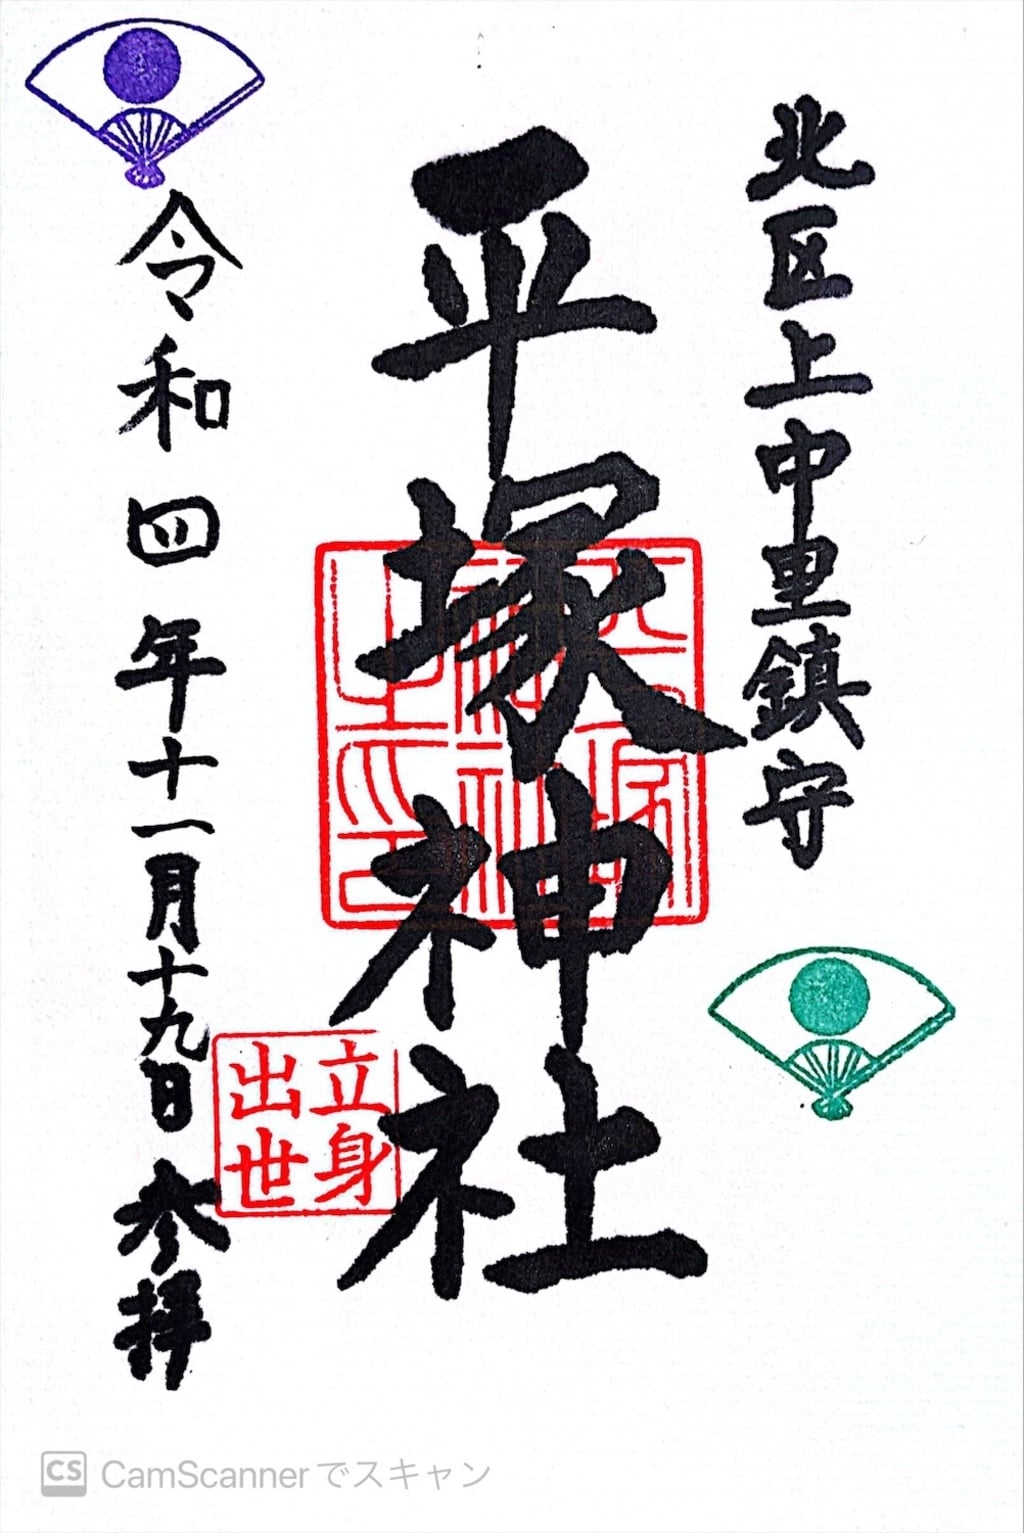 北区上中里鎮守
平塚神社
平塚神社之印
立身
出世
令和四年十一月十九日参拝
CS CamScannerでスキャン